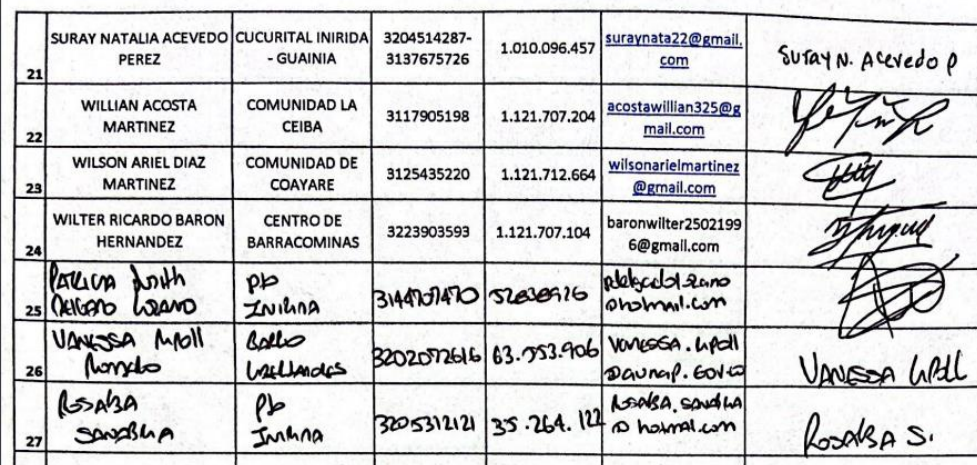 21 SURAY NATALIA ACEVEDO PEREZ CUCURITAL INIRIDA - GUAINIA 3204514287-3137675726 1.010.096.457 suraynata22@gmail.com SURAY N. Acevedo P
22 WILLIAN ACOSTA MARTINEZ COMUNIDAD LA CEIBA 3117905198 1.121.707.204 acostawillian325@gmail.com
23 WILSON ARIEL DIAZ MARTINEZ COMUNIDAD DE COAYARE 3125435220 1.121.712.664 wilsonarielmartinez@gmail.com
24 WILTER RICARDO BARON HERNANDEZ CENTRO DE BARRACOMINAS 3223903593 1.121.707.104 baronwilter25021996@gmail.com
25 PATRICIA DELGADO LOZANO INIRIDA 3144707470 @hotmail.com
26 VANESSA 3202072616 VANESSA
27 ROSALBA SANABRIA INIRIDA 3205312121 35.264.122 ROSALBA.SANABRIA @hotmail.com ROSALBA S.